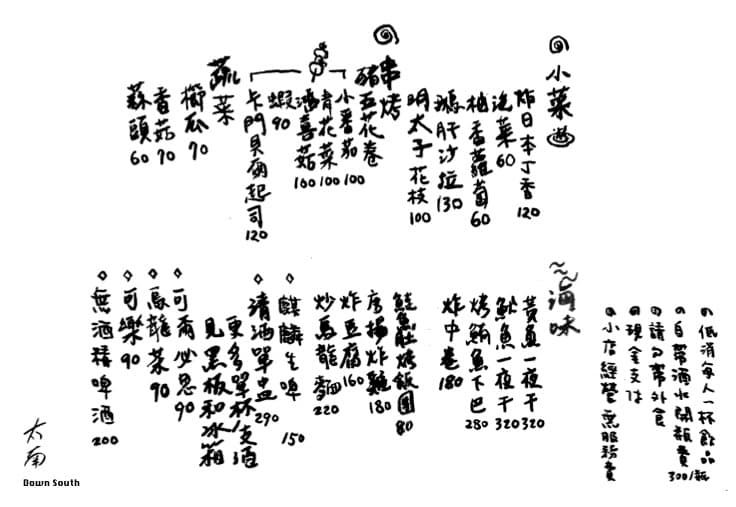 小菜
炸日本丁香 120
泡菜 60
柚香蘿蔔 60
鵝肝沙拉 130
明太子花枝 100
串烤
豬五花卷
小番茄 100
青花菜 100
鴻喜菇 100
蝦 90
卡門貝爾起司 120
蔬菜
櫛瓜 70
香菇 70
蒜頭 60
海味
黃魚一夜干 320
魷魚一夜干 320
烤鰤魚下巴 280
炸中卷 180
鮭魚肚烤飯團 80
唐揚炸雞 180
炸豆腐 160
炒烏龍麵 220
麒麟生啤 150
清酒單盅 290
更多單杯/支酒
見黑板和冰箱
可爾必思 90
烏龍茶 90
可樂 90
無酒精啤酒 200
低消每人一杯飲品
自帶酒水開瓶費 300/瓶
請勿帶外食
現金支付
小店經營無服務費
太南
Down South